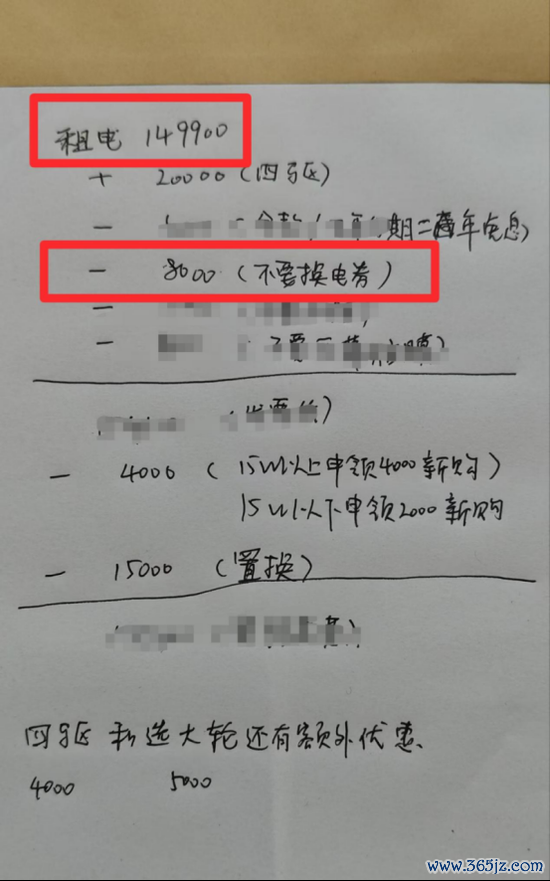 租电 149900
+ 20000(四驱)
- 期二两年免息)
- 8000(不要换电券)
-
-
- 4000(15W以上申领4000新购)
15W以下申领2000新购
- 15000(置换)
四驱 和选大轮还有额外优惠、
4000 5000
www.365jz.com